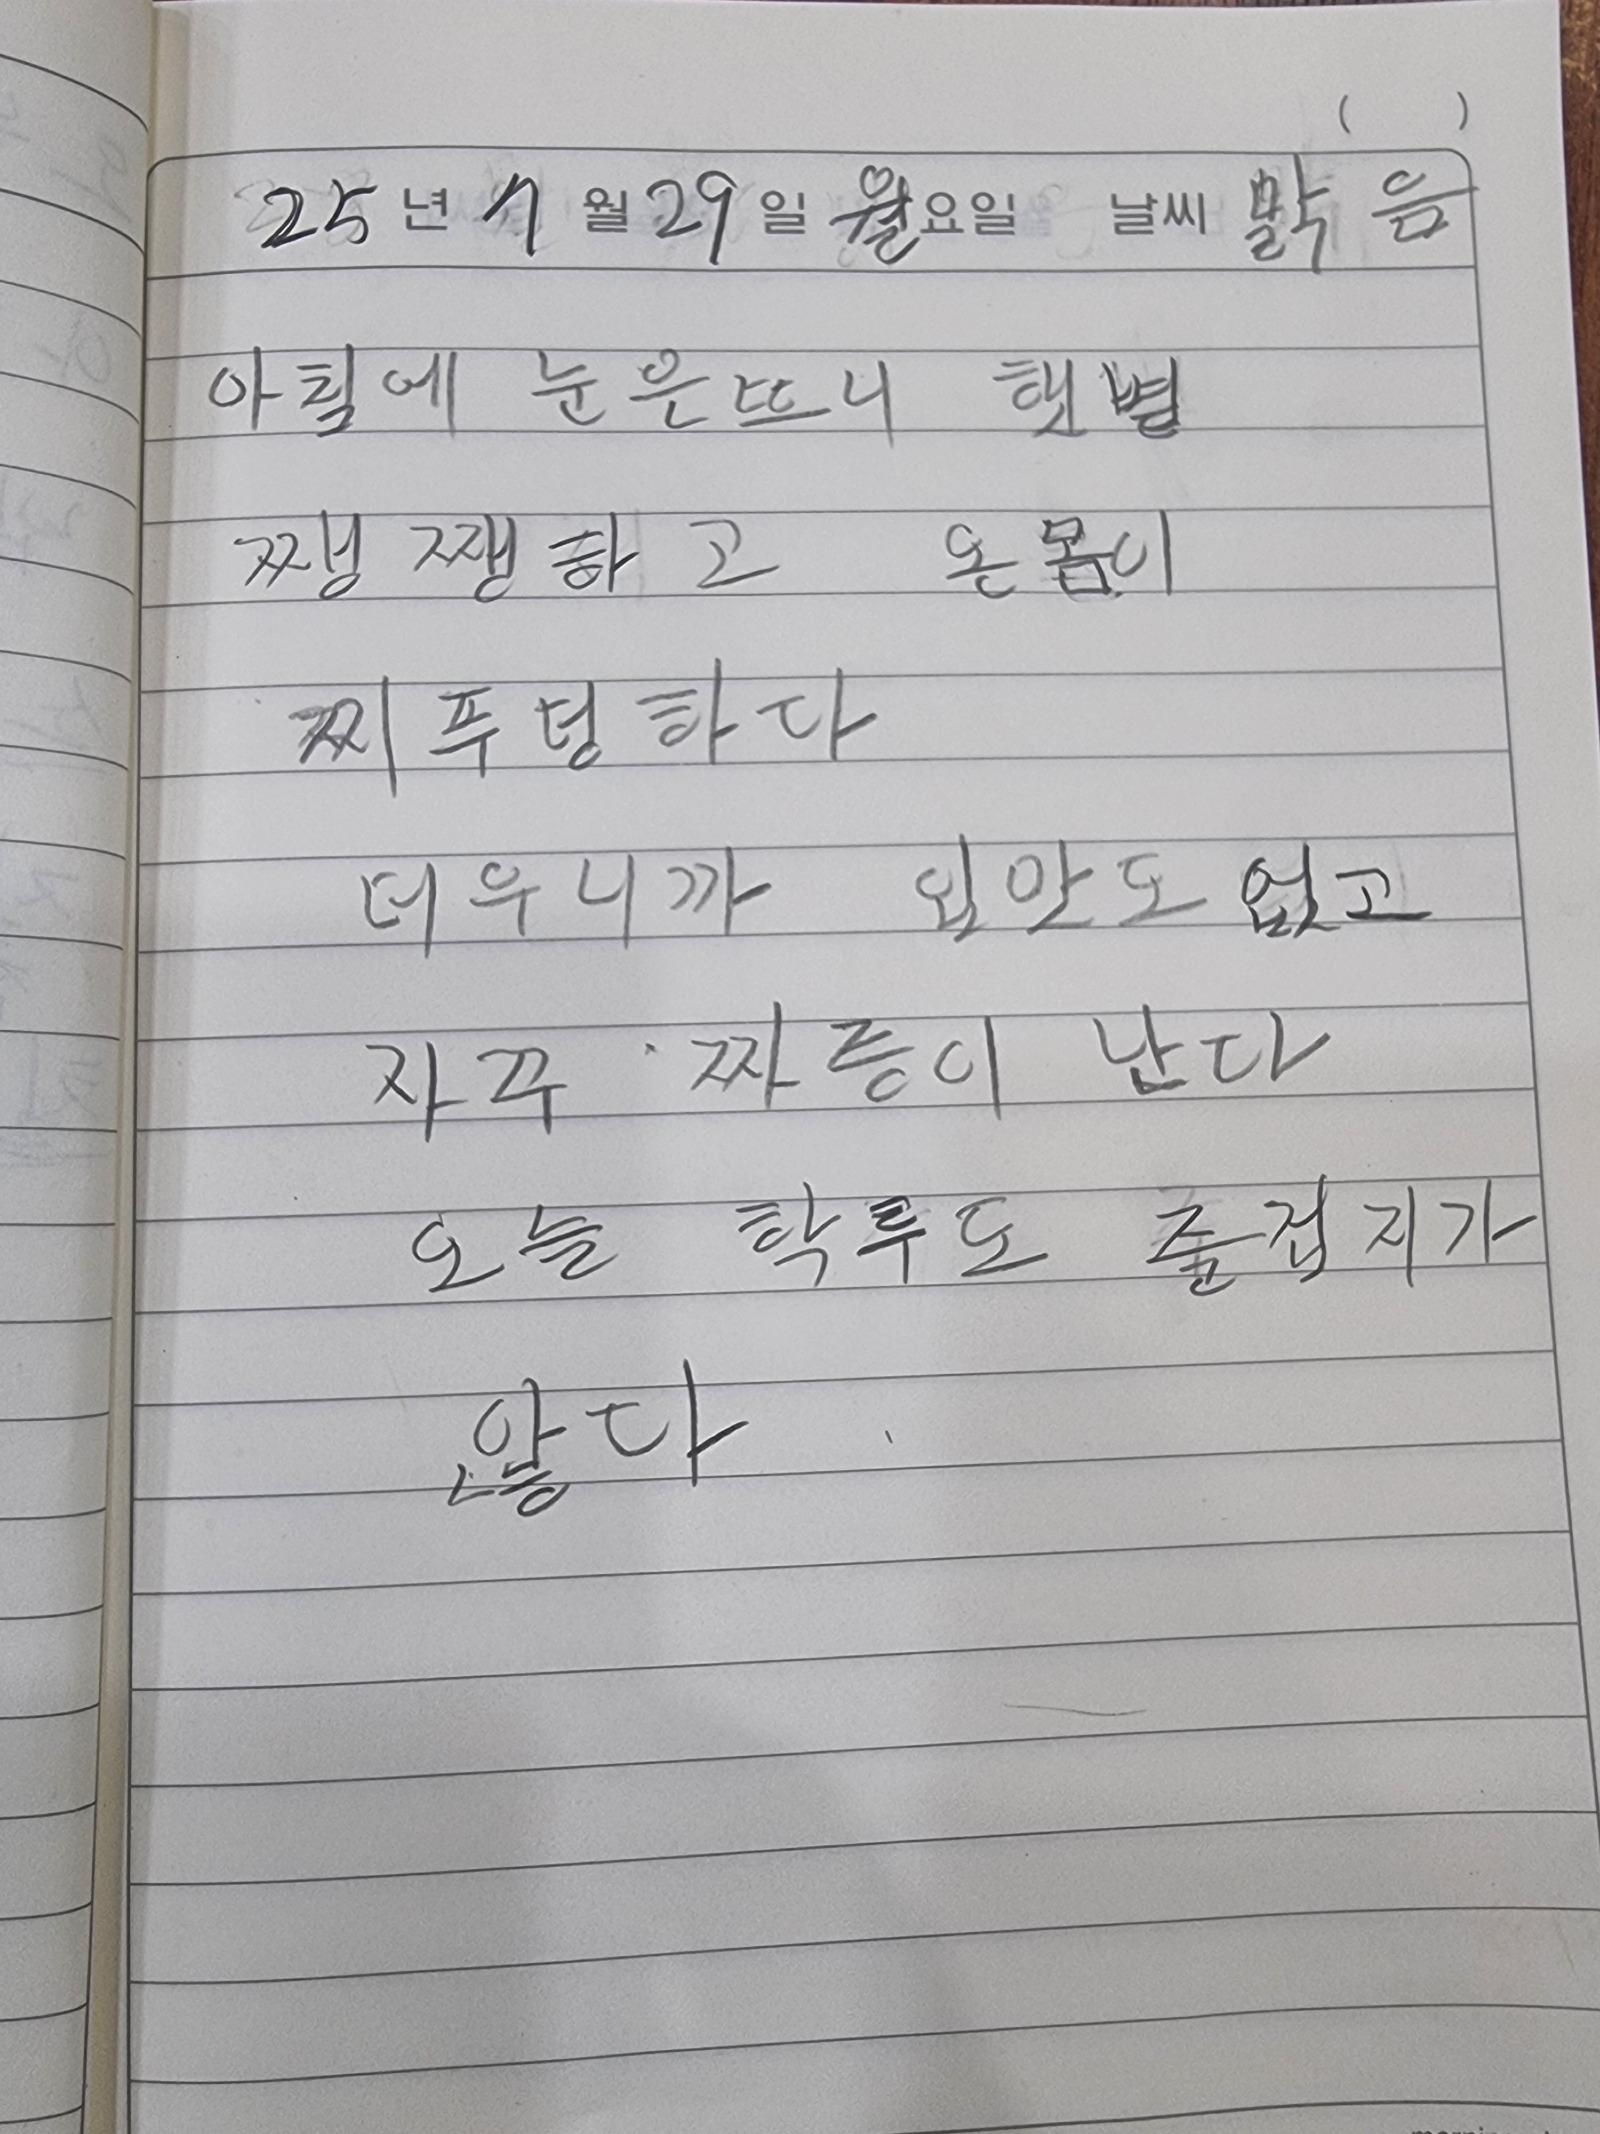 ( )
25 년 7 월 29 일 월요일 날씨 맑음
아침에 눈은뜨니 햇별
쨍쨍하고 온몸이
찌푸덩하다
더우니까 입맛도 없고
자꾸 짜증이 난다
오늘 학루도 즐겁지가
않다